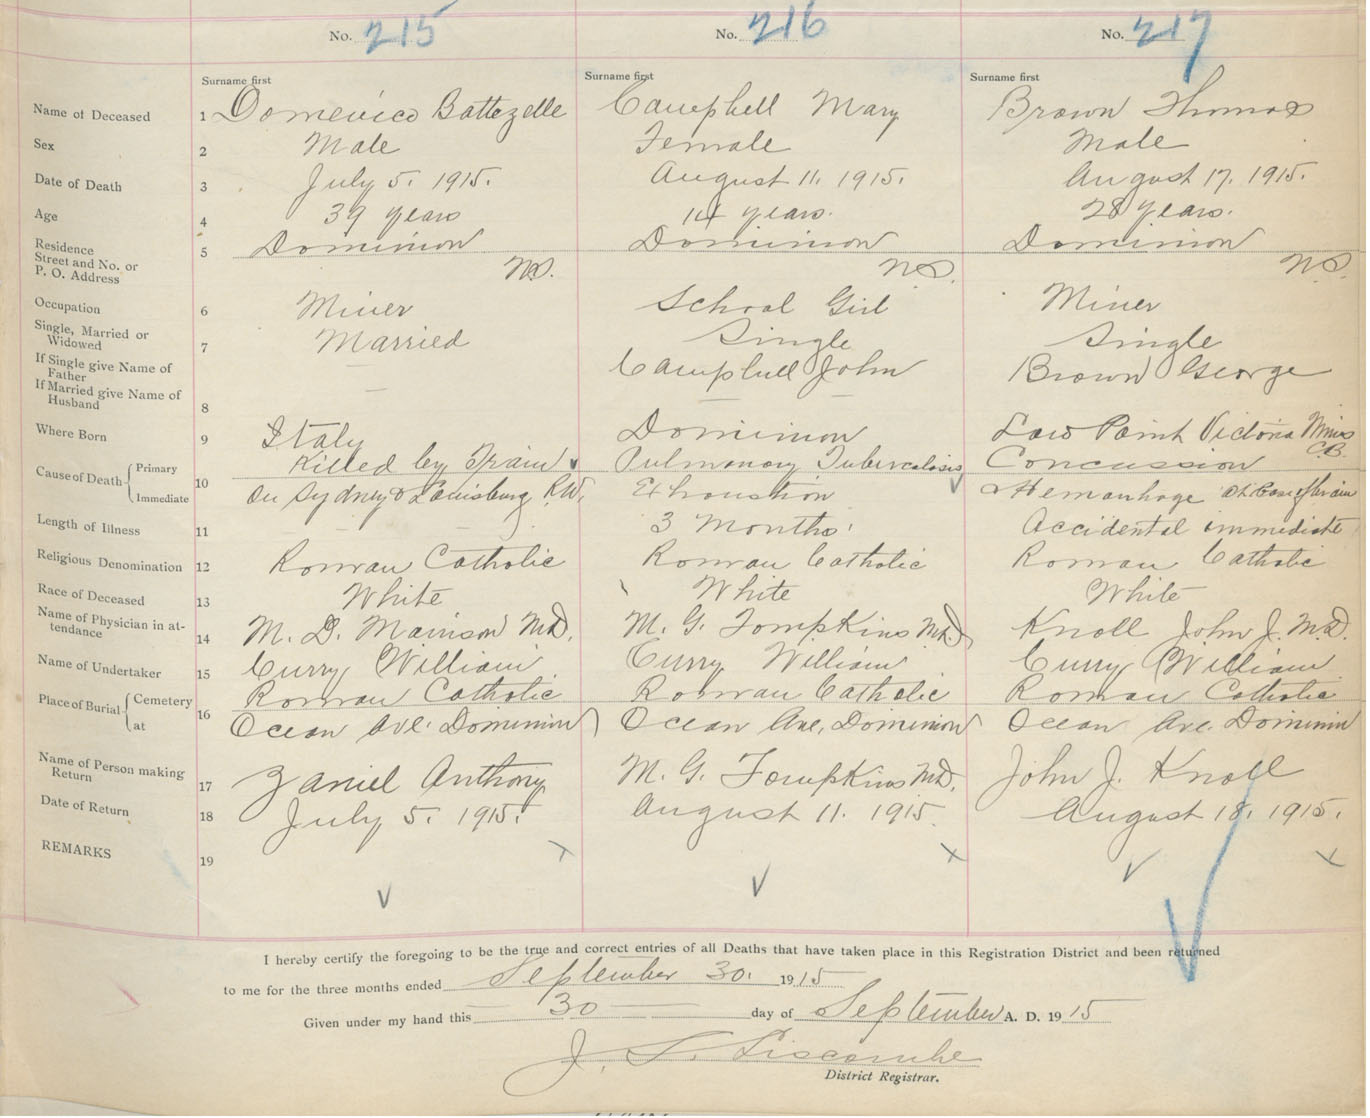 No. 215 No. 216 No. 217
Surname first Surname first Surname first
Name of Deceased 1 Domenico Battezelle Campbell Mary Brown Thomas
Sex 2 Male Female Male
Date of Death 3 July 5. 1915. August 11. 1915. August 17. 1915.
Age 4 39 years 14 years. 28 years.
Residence 5 Dominion Dominion Dominion
Street and No. or
P. O. Address N.S. N.S. N.S.
Occupation 6 Miner School Girl Miner
Single, Married or
Widowed 7 Married Single Single
If Single give Name of
Father — Campbell John Brown George
If Married give Name of
Husband 8 — — —
Where Born 9 Italy Dominion Low Point Victoria Mines C.B.
Cause of Death Primary Killed by Train Pulmonary Tuberculosis Concussion
Immediate 10 on Sydney & Louisburg R.W. Exhaustion & Hemorrhage at base of brain
Length of Illness 11 — — 3 Months. Accidental immediate
Religious Denomination 12 Roman Catholic Roman Catholic Roman Catholic
Race of Deceased 13 White White White
Name of Physician in at-
tendance 14 M. D. M.D. M. G. Tompkins M.D. Knoll John J. M.D.
Name of Undertaker 15 Curry William Curry William Curry William
Place of Burial Cemetery Roman Catholic Roman Catholic Roman Catholic
at 16 Ocean Ave. Dominion Ocean Ave, Dominion Ocean Ave. Dominion
Name of Person making
Return 17 Zaniel Anthony M. G. Tompkins M.D. John J. Knoll
Date of Return 18 July 5. 1915. August 11. 1915. August 18. 1915.
REMARKS 19
I hereby certify the foregoing to be the true and correct entries of all Deaths that have taken place in this Registration District and been returned
to me for the three months ended September 30. 1915
Given under my hand this 30 day of September A. D. 1915
J. S. Liscombe
District Registrar.